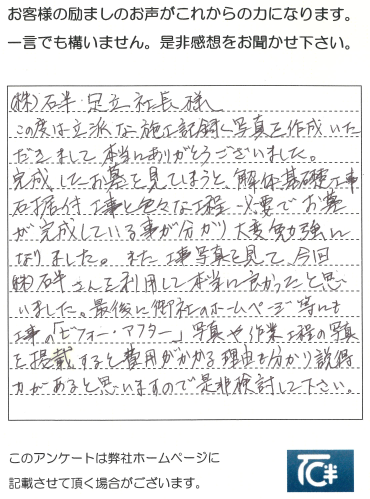 お客様の励ましのお声がこれからの力になります。
一言でも構いません。是非感想をお聞かせ下さい。
(株)石半 足立社長様
この度は立派な施工記録、写真を作成いた
だきまして本当にありがとうございました。
完成したお墓を見てほうと、解体基礎工事
石据付工事と色々な工程が必要でお墓
が完成している事が分かり大変勉強に
なりました。また、工事写真を見て、今回
(株)石半さんを利用して本当に良かったと思
いました。最後に御社のホームページ等にも
工事の「ビフォー・アフター」写真や作業工程の写真
を掲載すると費用がかかる理由も分かり説得
力があると思いますので是非検討して下さい。
このアンケートは弊社ホームページに
記載させて頂く場合がございます。